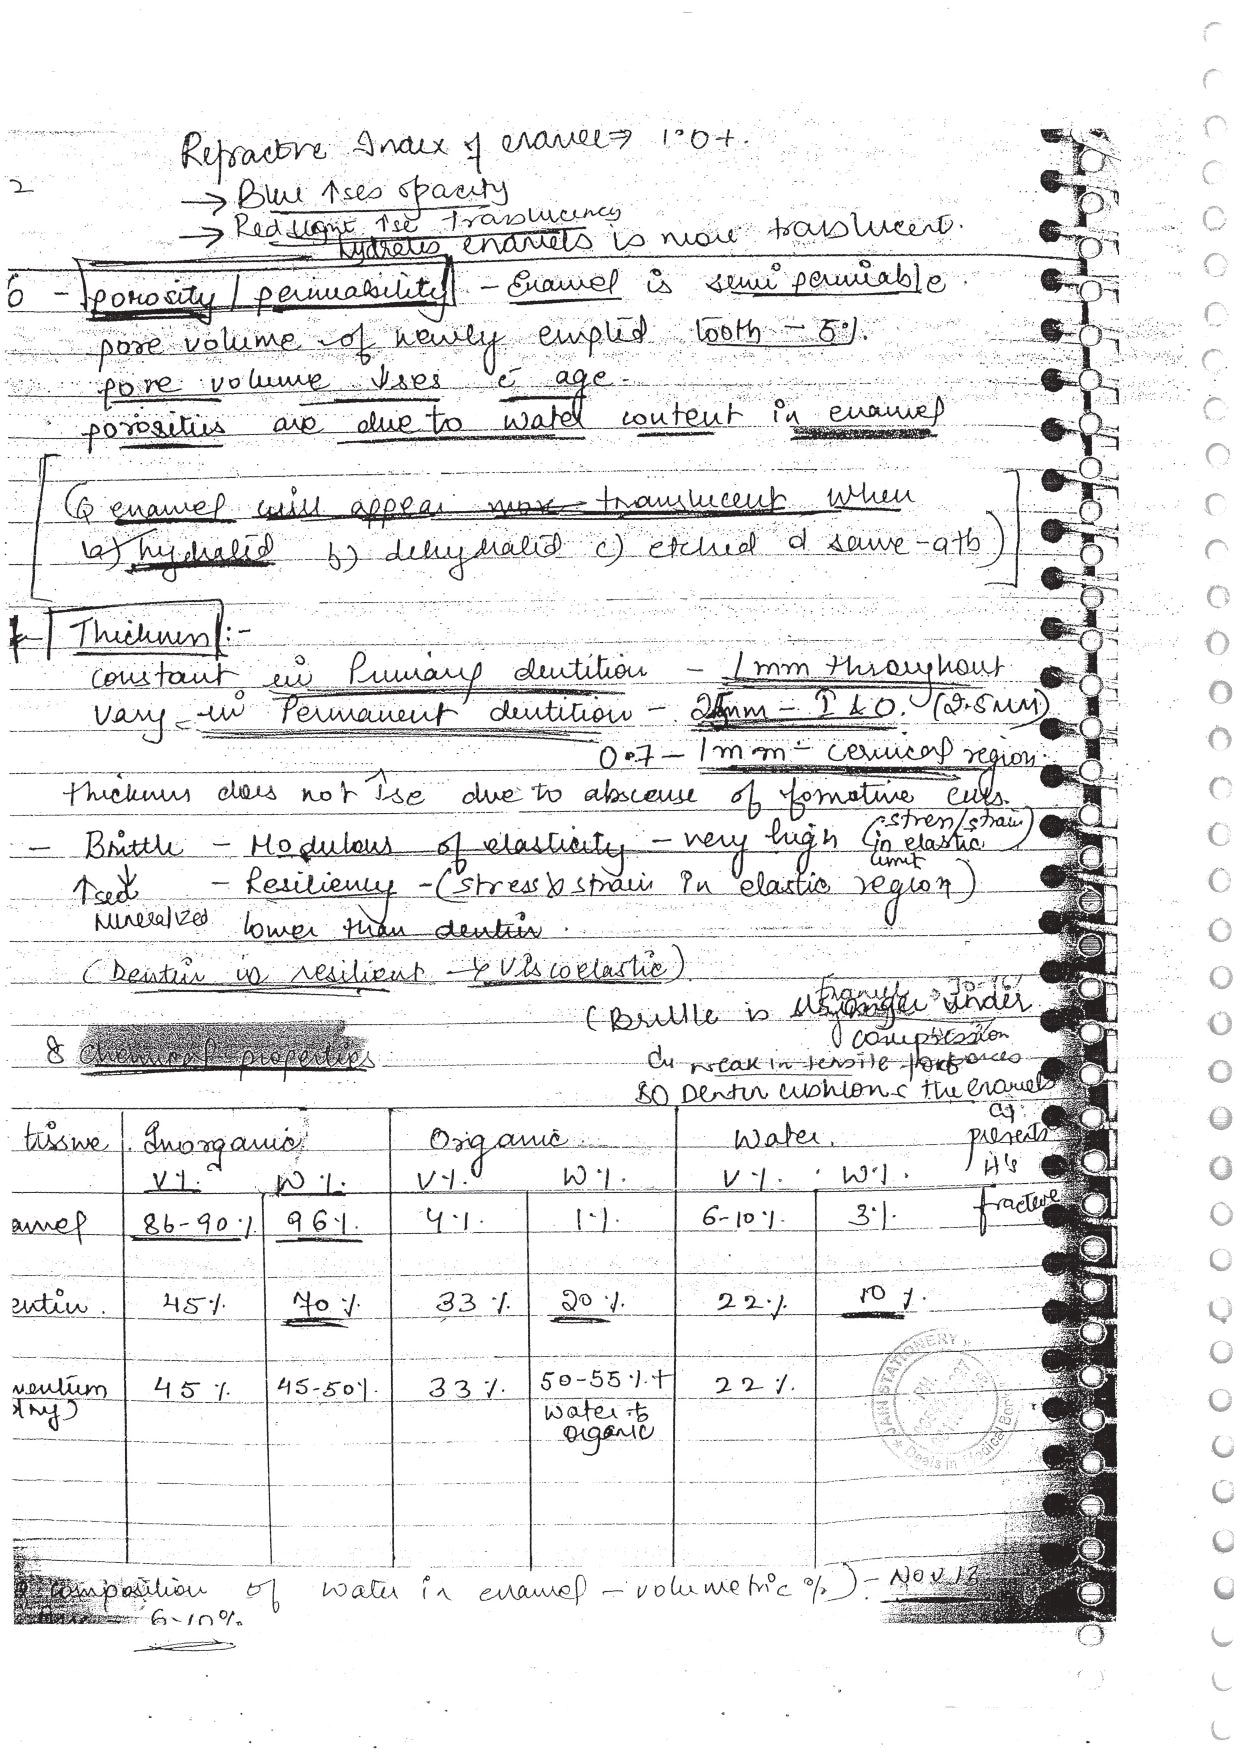 Refractive Index of enamel ⇒ 1.0+.
2
→ Blue ↑ses opacity
→ Red light ↑se translucency
hydrates enamels is more translucent.
6 - porosity / permuability - Enamel is semi permiable.
pore volume of newly erupted tooth - 5%.
pore volume ↓ses c̄ age.
porosities are due to water content in enamel
(Q enamel will appear more translucent when
a) hydratid b) dehydratid c) etched d same-a+b)
Thickness :-
constant in Primary dentition - 1mm throughout
Vary in Permanent dentition - 2mm - I & O. (2.5MM)
0.7 - 1mm - cervical region.
thickness does not ↑se due to abscense of formative cells.
- Brittle - Modulous of elasticity - very high (stress/strain)
in elastic
limit
↑sed - Resiliency - (stress x strain in elastic region)
Mineralized lower than dentin.
(Dentin is resilient → Viscoelastic)
(Brittle is stronger under
compression
weak in tensile forces
8 Chemical properties
so Dentin cushions the enamel
&
prevents
it's
fracture
tissue Inorganic Organic Water.
V%. W%. V%. W%. V%. W%.
amel 86-90% 96% 4%. 1%. 6-10%. 3%.
entin. 45%. 70%. 33%. 20%. 22%. 10%.
mentum 45%. 45-50%. 33%. 50-55%+ 22%.
Water +
organic
JAIN STATIONERY
Deals in Medical Books
composition of water in enamel - volumetric %) - NOV 13
6-10%